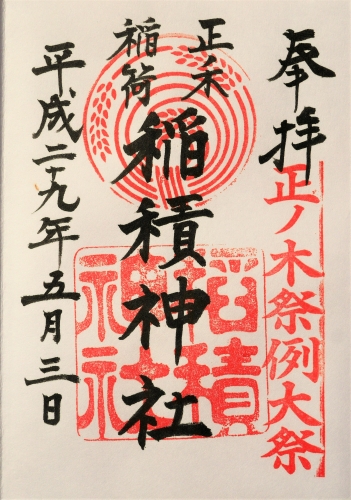 奉拝
正ノ木祭例大祭
正木
稲荷
稲積神社
稲積
神社
平成二十九年五月三日